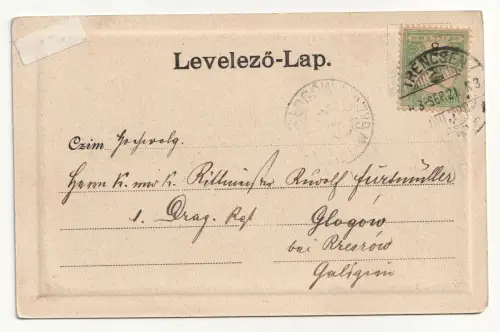 Levelező-Lap.
TRENCSÉN
Czim: Hochwolg.
Herrn K. und K. Rittmeister Rudolf Furtmüller
1. Drag. Rgt
Glogów
bei Rzeszów
Galizien